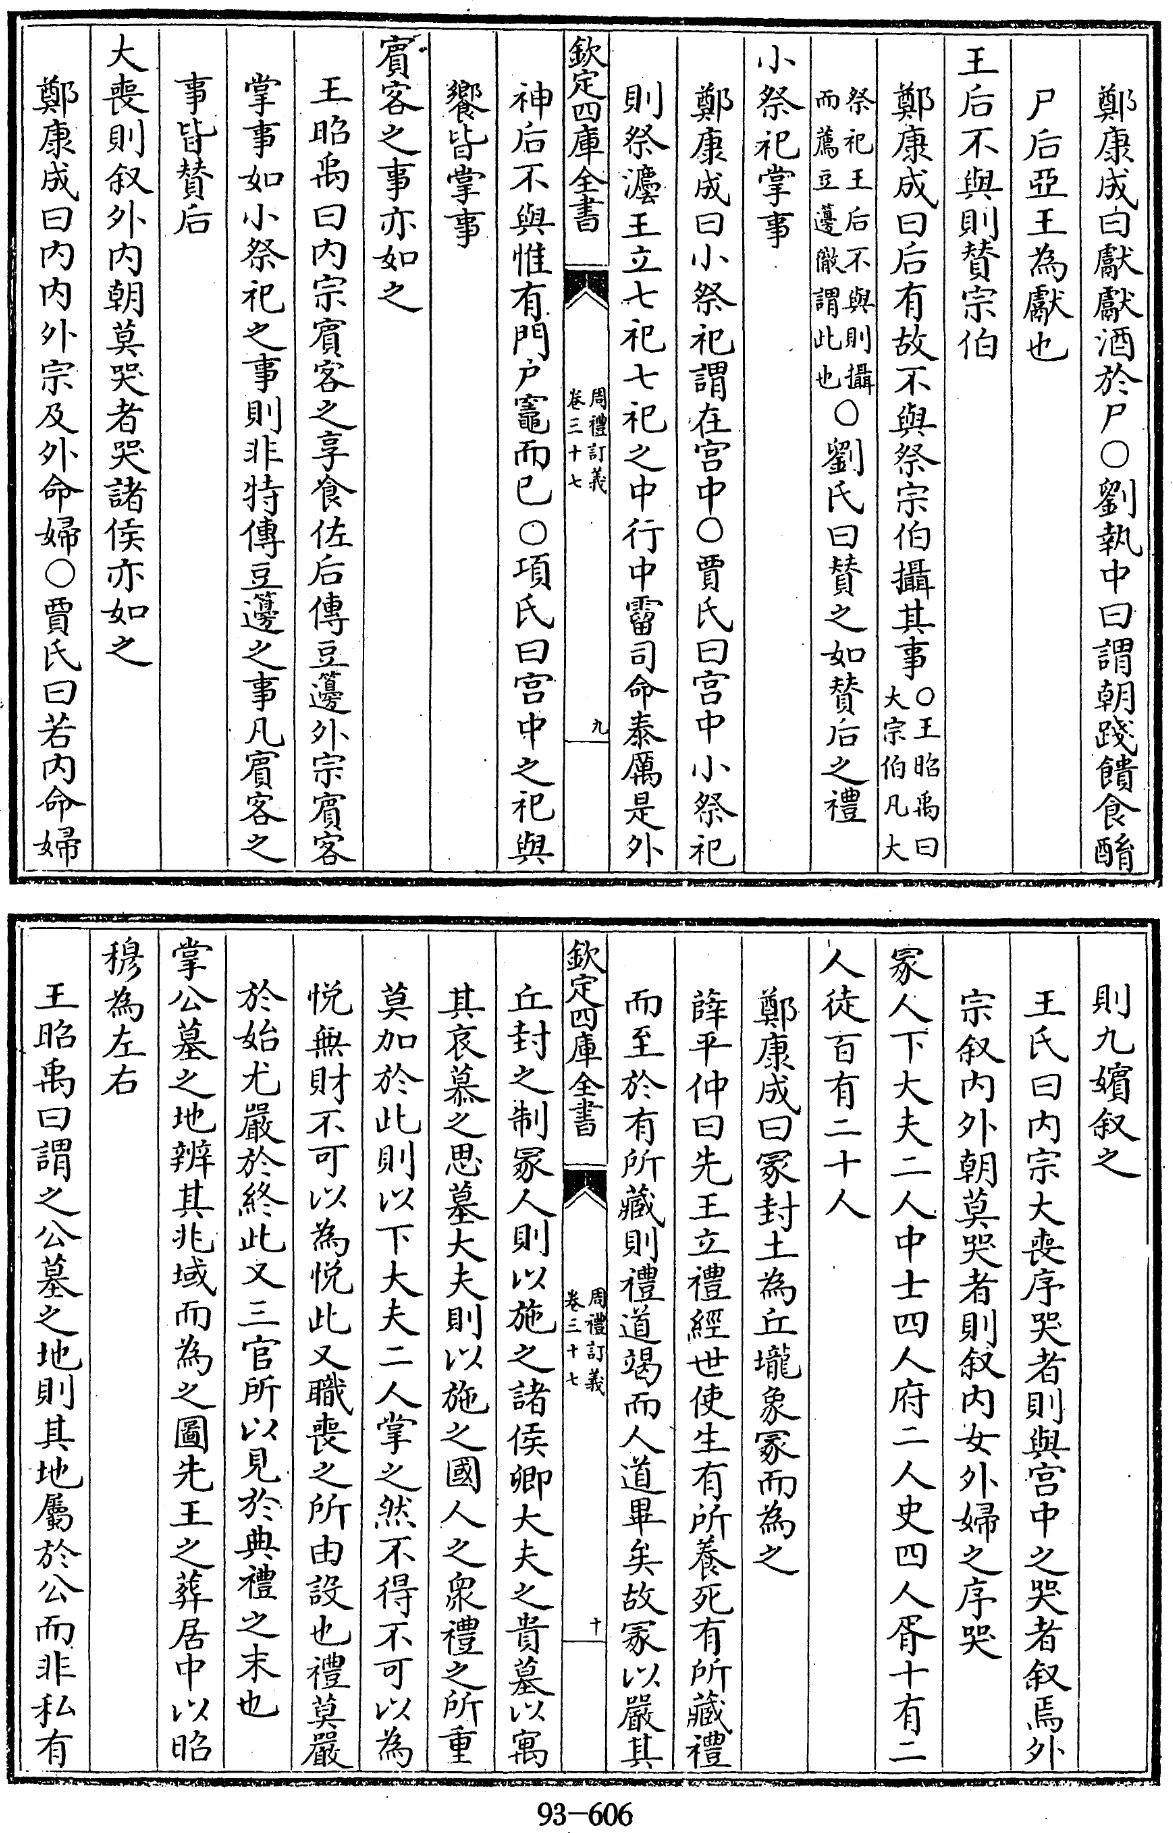 鄭康成曰獻獻酒於尸○劉執中曰謂朝踐饋食酳
尸后亞王為獻也
王后不與則贊宗伯
鄭康成曰后有故不與祭宗伯攝其事○王昭禹曰大宗伯凡大
祭祀王后不與則攝而薦豆籩徹謂此也○劉氏曰贊之如贊后之禮
小祭祀掌事
鄭康成曰小祭祀謂在宫中○賈氏曰宫中小祭祀
則祭灋王立七祀七祀之中行中霤司命泰厲是外
欽定四庫全書
周禮訂義
卷三十七
九
神后不與惟有門户竈而已○項氏曰宫中之祀與
饗皆掌事
賔客之事亦如之
王昭禹曰内宗賔客之享食佐后傳豆籩外宗賔客
掌事如小祭祀之事則非特傳豆籩之事凡賔客之
事皆贊后
大喪則叙外内朝莫哭者哭諸侯亦如之
鄭康成曰内内外宗及外命婦○賈氏曰若内命婦
則九嬪叙之
王氏曰内宗大喪序哭者則與宫中之哭者叙焉外
宗叙内外朝莫哭者則叙内女外婦之序哭
冡人下大夫二人中士四人府二人史四人胥十有二
人徒百有二十人
鄭康成曰冡封土為丘壠象冡而為之
薛平仲曰先王立禮經世使生有所養死有所藏禮
而至於有所藏則禮道竭而人道畢矣故冡以嚴其
欽定四庫全書
周禮訂義
卷三十七
十
丘封之制冡人則以施之諸侯卿大夫之貴墓以寓
其哀慕之思墓大夫則以施之國人之衆禮之所重
莫加於此則以下大夫二人掌之然不得不可以為
悦無財不可以為悦此又職喪之所由設也禮莫嚴
於始尤嚴於終此又三官所以見於典禮之末也
掌公墓之地辨其兆域而為之圖先王之葬居中以昭
穆為左右
王昭禹曰謂之公墓之地則其地屬於公而非私有
93-606